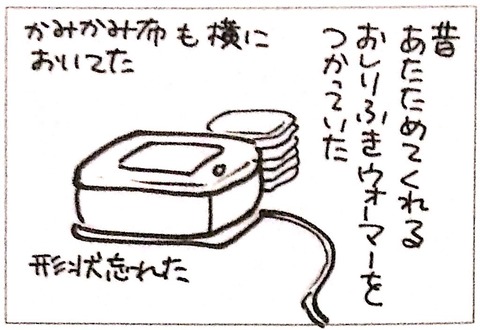 昔
あたためてくれる
おしりふきウォーマーを
つかっていた
かみかみ布も横に
おいてた
形状忘れた